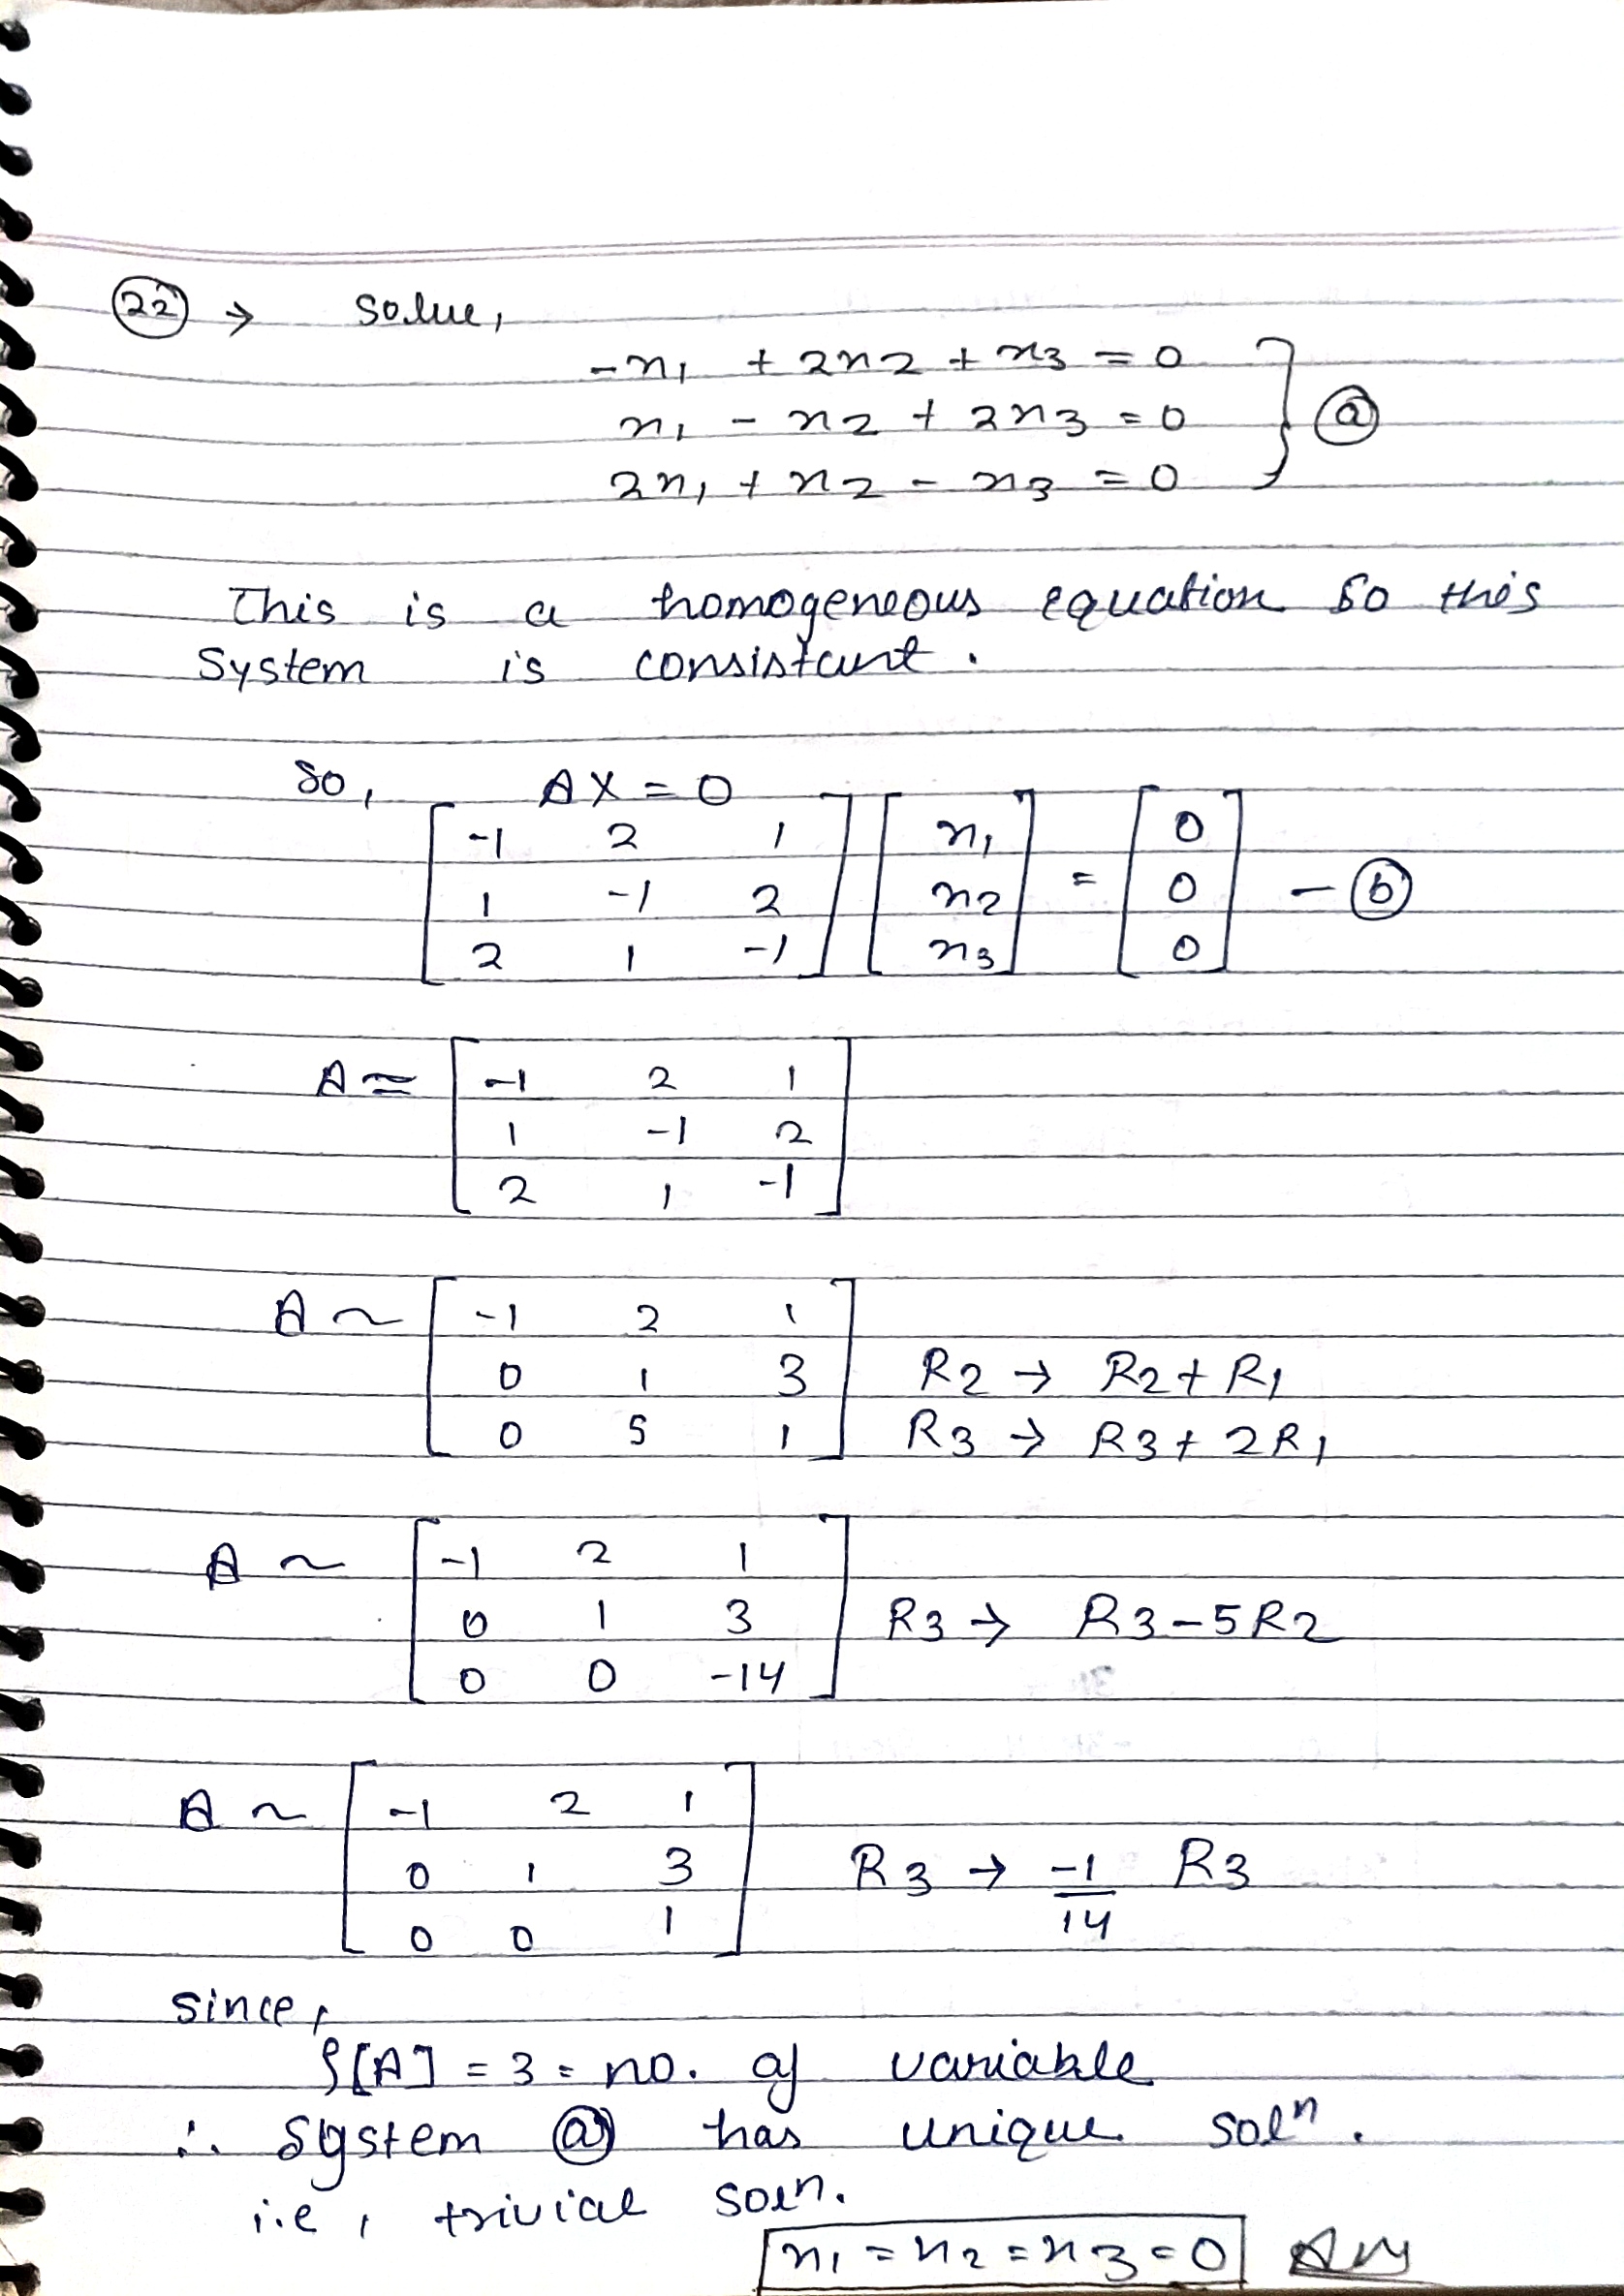 22 → Solve,
-x1 + 2x2 + x3 = 0
x1 - x2 + 2x3 = 0 } a
2x1 + x2 - x3 = 0
This is a homogeneous equation so this
System is consistant.
So, AX = 0
[ -1 2 1 ] [ x1 ] [ 0 ]
[ 1 -1 2 ] [ x2 ] = [ 0 ] - b
[ 2 1 -1 ] [ x3 ] [ 0 ]
A = [ -1 2 1 ]
[ 1 -1 2 ]
[ 2 1 -1 ]
A ~ [ -1 2 1 ]
[ 0 1 3 ] R2 → R2 + R1
[ 0 5 1 ] R3 → R3 + 2R1
A ~ [ -1 2 1 ]
[ 0 1 3 ] R3 → R3 - 5R2
[ 0 0 -14 ]
A ~ [ -1 2 1 ]
[ 0 1 3 ] R3 → -1/14 R3
[ 0 0 1 ]
since,
ρ[A] = 3 = no. of variable
∴ System a has unique solⁿ.
i.e, trivial soln.
x1 = x2 = x3 = 0 Ans